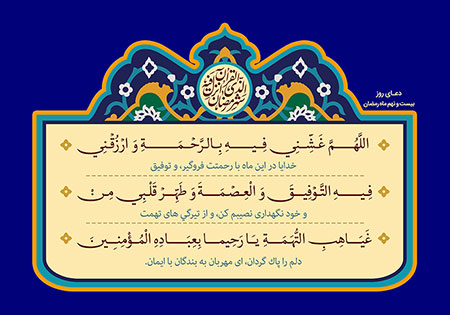 دعـای روز
بیست و نهم ماه رمضان
شهر رمضان الذی انزل فیه القرآن
اللَّهُمَّ غَشِّنِي فِيهِ بِالرَّحْمَةِ وَ ارْزُقْنِي
خدایا در این ماه با رحمتت فروگیر، و توفیق
فِيهِ التَّوْفِيقَ وَ الْعِصْمَةَ وَ طَهِّرْ قَلْبِي مِنْ
و خود نگهداری نصیبم کن، و از تیرگی های تهمت
غَيَاهِبِ التُّهَمَةِ يَا رَحِيما بِعِبَادِهِ الْمُؤْمِنِينَ
دلم را پاك گردان، ای مهربان به بندگان با ایمان.